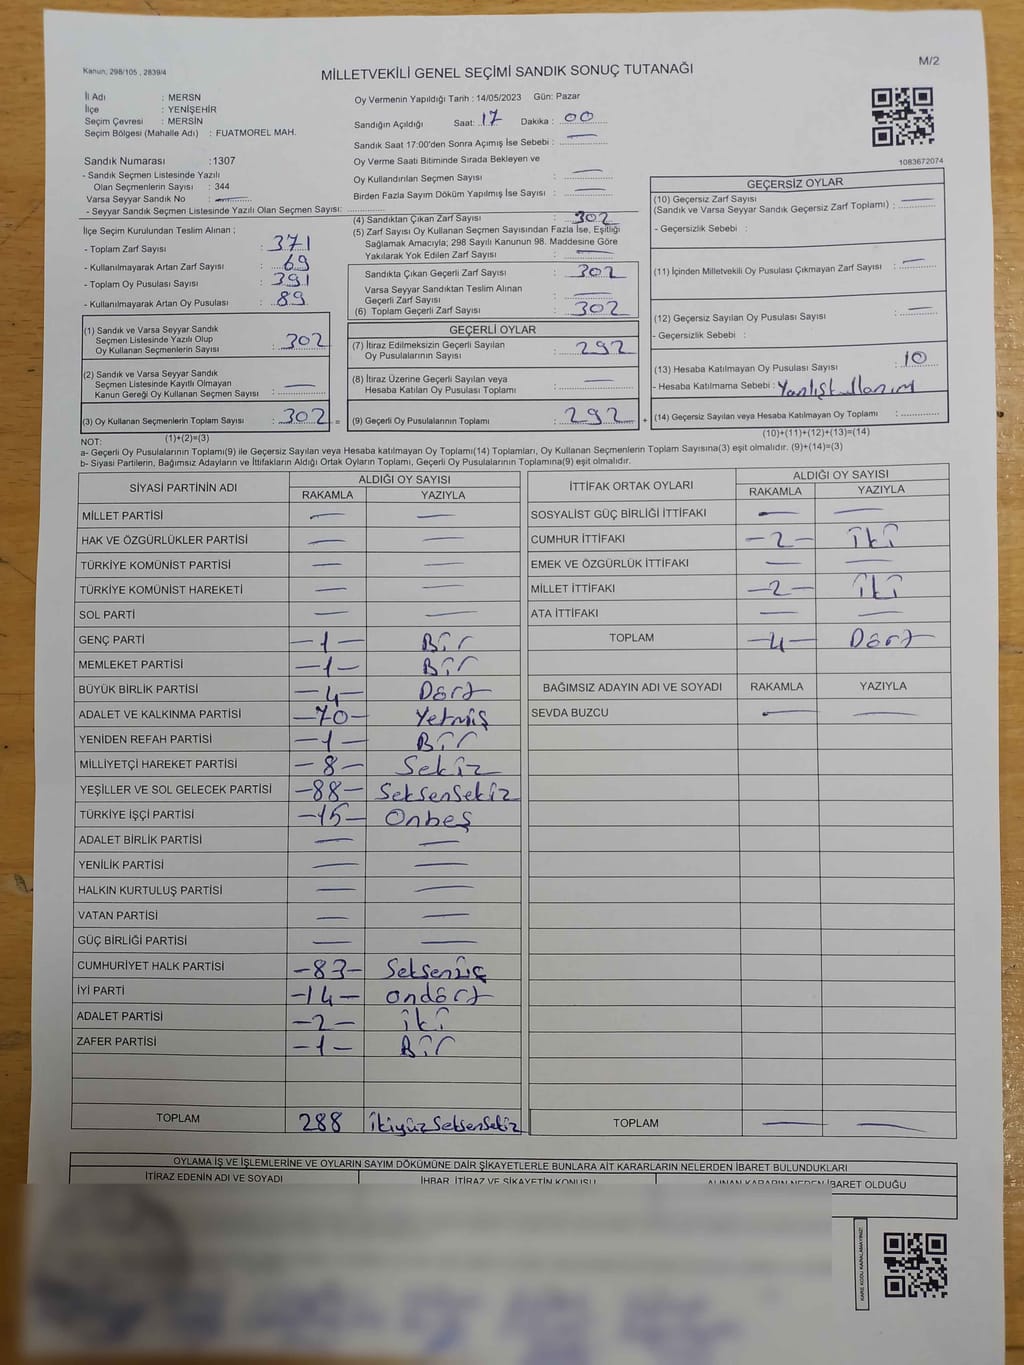 Kanun; 298/105 , 2839/4
MİLLETVEKİLİ GENEL SEÇİMİ SANDIK SONUÇ TUTANAĞI
M/2
İl Adı : MERSN
İlçe : YENİŞEHİR
Seçim Çevresi : MERSİN
Seçim Bölgesi (Mahalle Adı) : FUATMOREL MAH.
Sandık Numarası :1307
- Sandık Seçmen Listesinde Yazılı
Olan Seçmenlerin Sayısı : 344
Varsa Seyyar Sandık No :
- Seyyar Sandık Seçmen Listesinde Yazılı Olan Seçmen Sayısı:
Oy Vermenin Yapıldığı Tarih : 14/05/2023 Gün: Pazar
Sandığın Açıldığı Saat: 17 Dakika : 00
Sandık Saat 17:00'den Sonra Açımış İse Sebebi : —
Oy Verme Saati Bitiminde Sırada Bekleyen ve
Oy Kullandırılan Seçmen Sayısı : —
Birden Fazla Sayım Döküm Yapılmış İse Sayısı : —
1083672074
İlçe Seçim Kurulundan Teslim Alınan ;
- Toplam Zarf Sayısı : 371
- Kullanılmayarak Artan Zarf Sayısı : 69
- Toplam Oy Pusulası Sayısı : 391
- Kullanılmayarak Artan Oy Pusulası : 89
(1) Sandık ve Varsa Seyyar Sandık
Seçmen Listesinde Yazılı Olup
Oy Kullanan Seçmenlerin Sayısı : 302
(2) Sandık ve Varsa Seyyar Sandık
Seçmen Listesinde Kayıtlı Olmayan
Kanun Gereği Oy Kullanan Seçmen Sayısı : —
(3) Oy Kullanan Seçmenlerin Toplam Sayısı : 302 =
(1)+(2)=(3)
(4) Sandıktan Çıkan Zarf Sayısı : 302
(5) Zarf Sayısı Oy Kullanan Seçmen Sayısından Fazla İse, Eşitliği
Sağlamak Amacıyla; 298 Sayılı Kanunun 98. Maddesine Göre
Yakılarak Yok Edilen Zarf Sayısı : —
Sandıkta Çıkan Geçerli Zarf Sayısı : 302
Varsa Seyyar Sandıktan Teslim Alınan
Geçerli Zarf Sayısı : —
(6) Toplam Geçerli Zarf Sayısı : 302
GEÇERLİ OYLAR
(7) İtiraz Edilmeksizin Geçerli Sayılan
Oy Pusulalarının Sayısı : 292
(8) İtiraz Üzerine Geçerli Sayılan veya
Hesaba Katılan Oy Pusulası Toplamı : —
(9) Geçerli Oy Pusulalarının Toplamı : 292 +
GEÇERSİZ OYLAR
(10) Geçersiz Zarf Sayısı : —
(Sandık ve Varsa Seyyar Sandık Geçersiz Zarf Toplamı)
- Geçersizlik Sebebi :
(11) İçinden Milletvekili Oy Pusulası Çıkmayan Zarf Sayısı : —
(12) Geçersiz Sayılan Oy Pusulası Sayısı : —
- Geçersizlik Sebebi :
(13) Hesaba Katılmayan Oy Pusulası Sayısı : 10
- Hesaba Katılmama Sebebi : Yanlış kullanım
(14) Geçersiz Sayılan veya Hesaba Katılmayan Oy Toplamı :
(10)+(11)+(12)+(13)=(14)
NOT:
a- Geçerli Oy Pusulalarının Toplamı(9) ile Geçersiz Sayılan veya Hesaba katılmayan Oy Toplamı(14) Toplamları, Oy Kullanan Seçmenlerin Toplam Sayısına(3) eşit olmalıdır. (9)+(14)=(3)
b- Siyasi Partilerin, Bağımsız Adayların ve İttifakların Aldığı Ortak Oyların Toplamı, Geçerli Oy Pusulalarının Toplamına(9) eşit olmalıdır.
SİYASİ PARTİNİN ADI ALDIĞI OY SAYISI
RAKAMLA YAZIYLA
MİLLET PARTİSİ — —
HAK VE ÖZGÜRLÜKLER PARTİSİ — —
TÜRKİYE KOMÜNİST PARTİSİ — —
TÜRKİYE KOMÜNİST HAREKETİ — —
SOL PARTİ — —
GENÇ PARTİ —1— Bir
MEMLEKET PARTİSİ —1— Bir
BÜYÜK BİRLİK PARTİSİ —4— Dört
ADALET VE KALKINMA PARTİSİ —70— Yetmiş
YENİDEN REFAH PARTİSİ —1— Bir
MİLLİYETÇİ HAREKET PARTİSİ —8— Sekiz
YEŞİLLER VE SOL GELECEK PARTİSİ —88— Seksensekiz
TÜRKİYE İŞÇİ PARTİSİ —15— Onbeş
ADALET BİRLİK PARTİSİ — —
YENİLİK PARTİSİ — —
HALKIN KURTULUŞ PARTİSİ — —
VATAN PARTİSİ — —
GÜÇ BİRLİĞİ PARTİSİ — —
CUMHURİYET HALK PARTİSİ —83— Seksenüç
İYİ PARTİ —14— Ondört
ADALET PARTİSİ —2— İki
ZAFER PARTİSİ —1— Bir
TOPLAM 288 İkiyüzseksensekiz
İTTİFAK ORTAK OYLARI ALDIĞI OY SAYISI
RAKAMLA YAZIYLA
SOSYALİST GÜÇ BİRLİĞİ İTTİFAKI — —
CUMHUR İTTİFAKI —2— İki
EMEK VE ÖZGÜRLÜK İTTİFAKI — —
MİLLET İTTİFAKI —2— İki
ATA İTTİFAKI — —
TOPLAM —4— Dört
BAĞIMSIZ ADAYIN ADI VE SOYADI RAKAMLA YAZIYLA
SEVDA BUZCU — —
TOPLAM — —
OYLAMA İŞ VE İŞLEMLERİNE VE OYLARIN SAYIM DÖKÜMÜNE DAİR ŞİKAYETLERLE BUNLARA AİT KARARLARIN NELERDEN İBARET BULUNDUKLARI
İTİRAZ EDENİN ADI VE SOYADI İHBAR, İTİRAZ VE ŞİKAYETİN KONUSU ALINAN KARARIN NEDEN İBARET OLDUĞU
KARE KODU KARALAMAYINIZ!